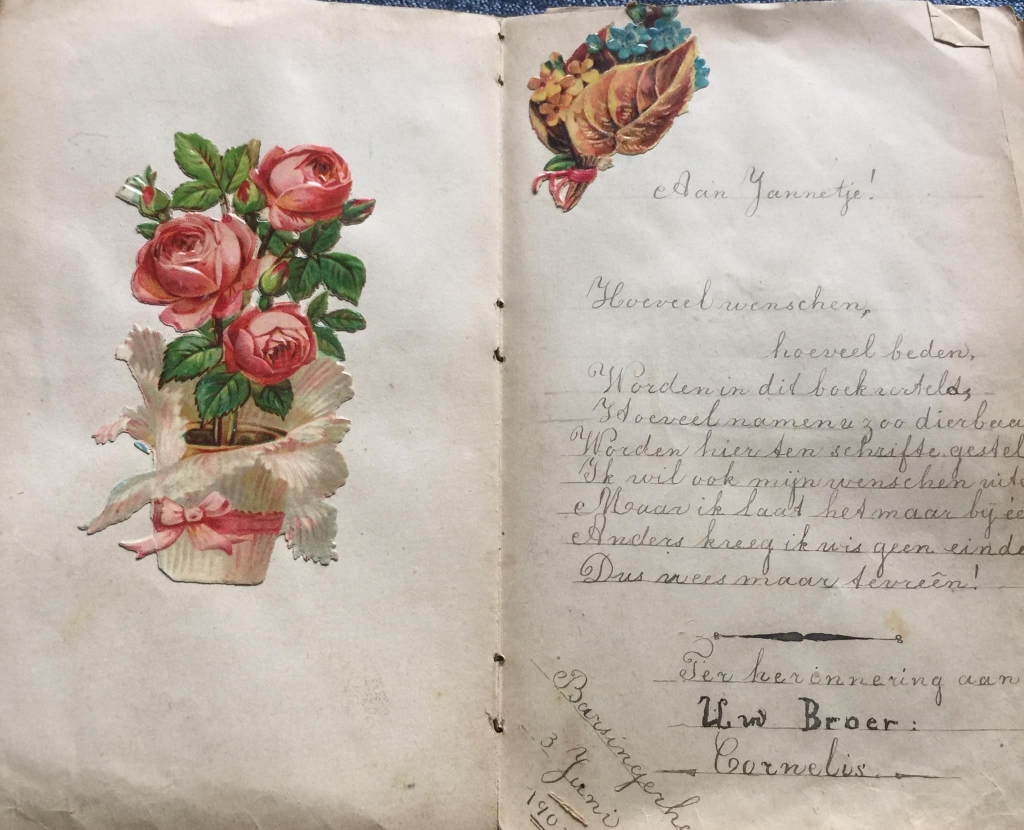 Aan Jannetje!
Hoeveel wenschen,
hoeveel beden,
Worden in dit boek verteld,
Hoeveel namen u zoo dierbaa
Worden hier ten schrifte gestel
Ik wil ook mijn wenschen uite
Maar ik laat het maar bij ée
Anders kreeg ik wis geen einde
Dus wees maar tevreên!
Ter herinnering aan
Uw Broer:
Cornelis
Barsingerh
3 Juni
190